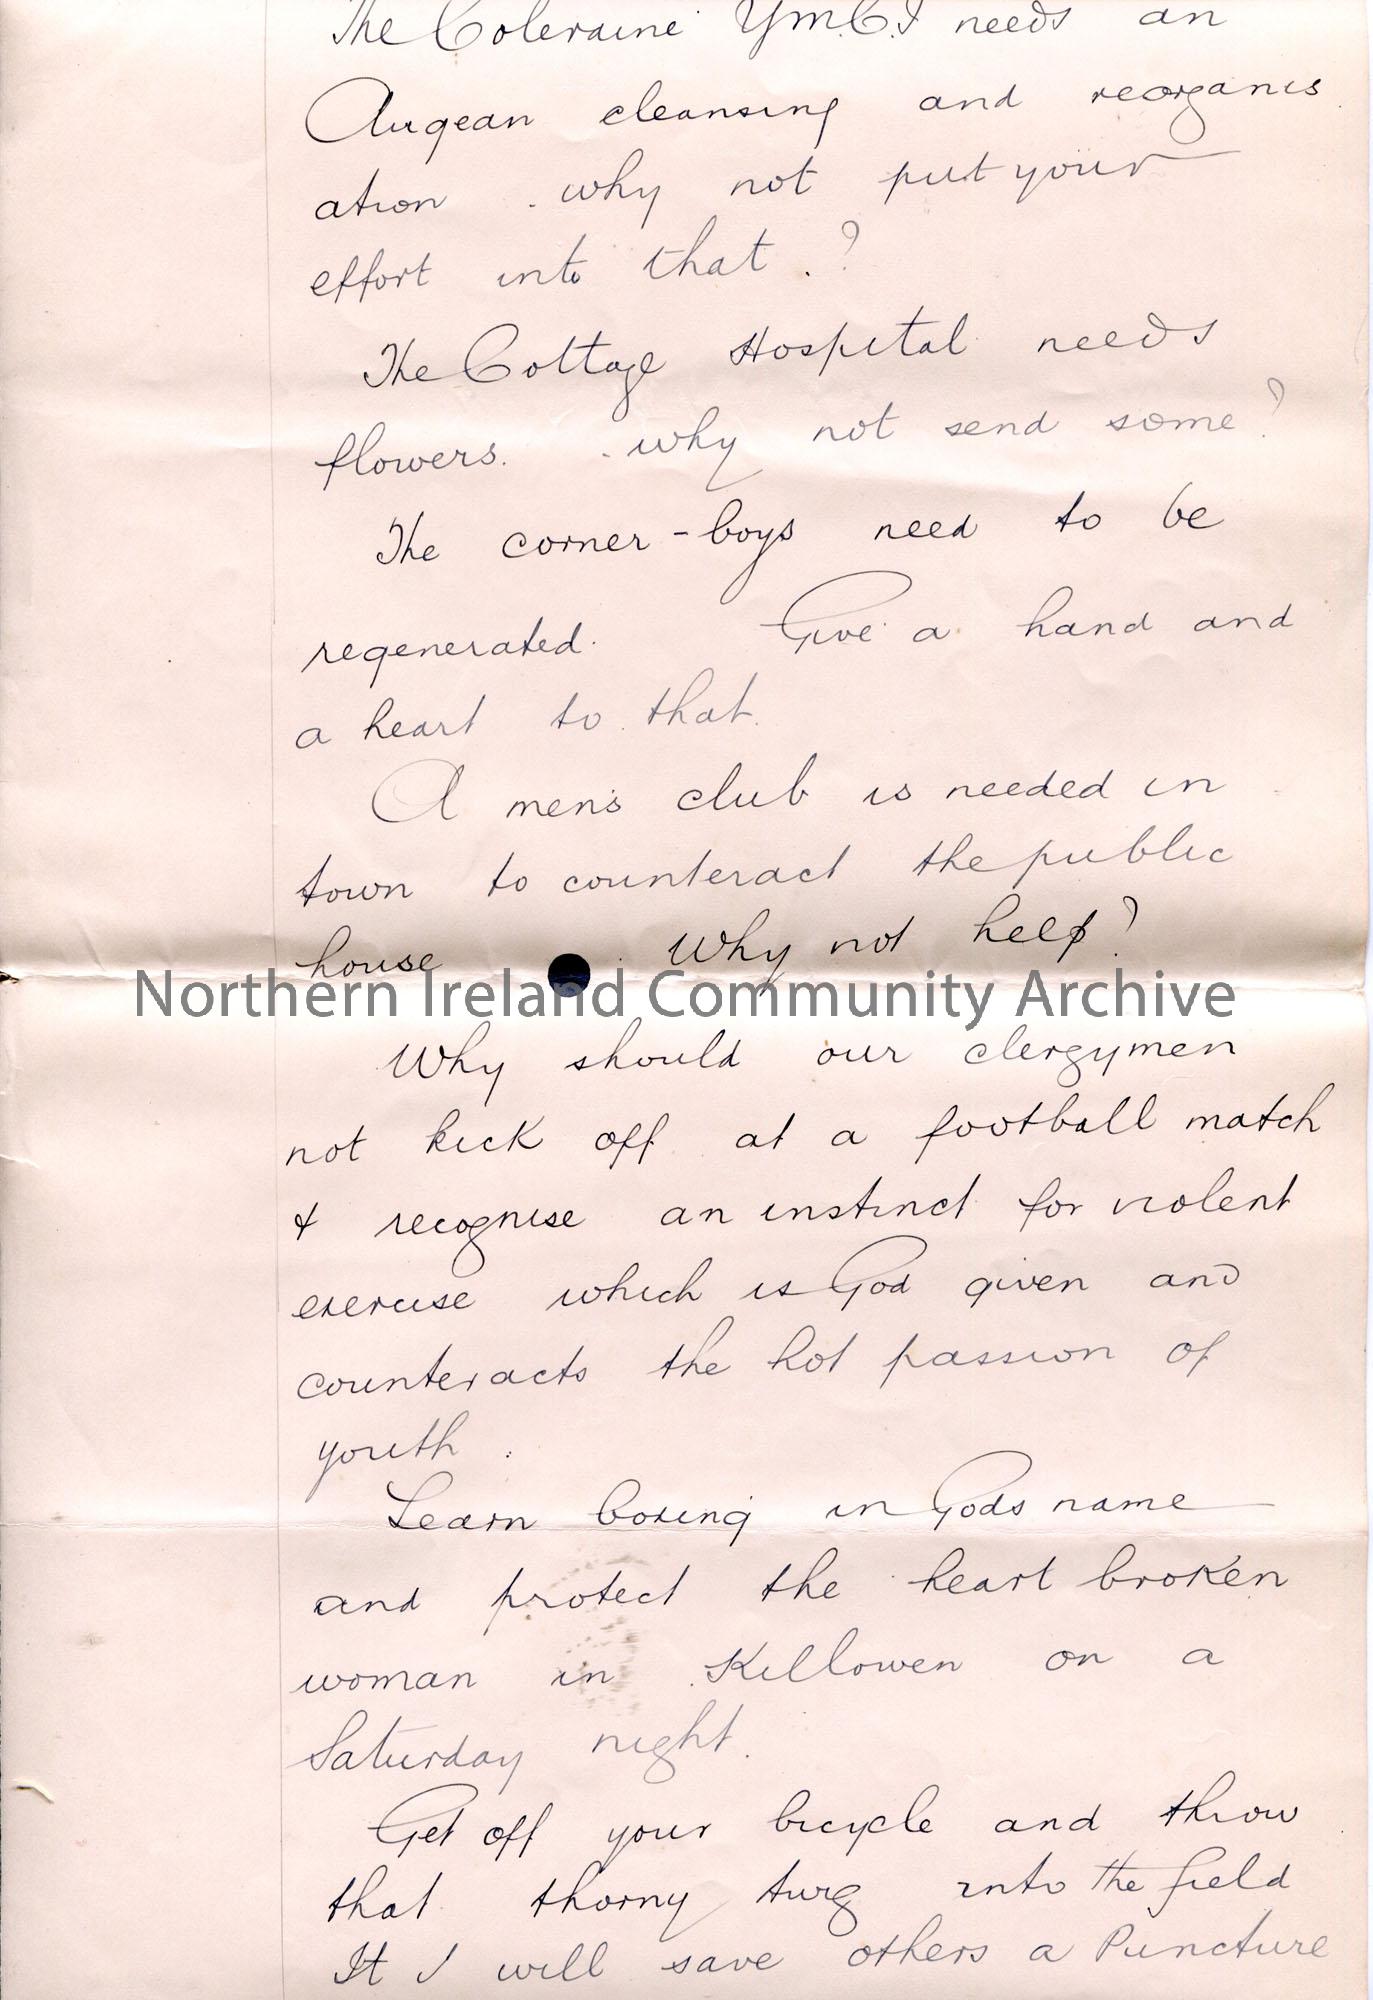 The Coleraine Y.M.C.I needs an
Augean cleansing and reorganis
ation . why not put your
effort into that . ?
The Cottage Hospital needs
flowers. . why not send some ?
The corner - boys need to be
regenerated. Give a hand and
a heart to that.
A men's club is needed in
town to counteract the public
house . Why not help ?
Northern Ireland Community Archive
Why should our clergymen
not kick off at a football match
& recognise an instinct for violent
exercise which is God given and
counteracts the hot passion of
youth .
Learn boxing in Gods name
and protect the heart broken
woman in Killowen on a
Saturday night.
Get off your bicycle and throw
that thorny twig into the field
It I will save others a Puncture